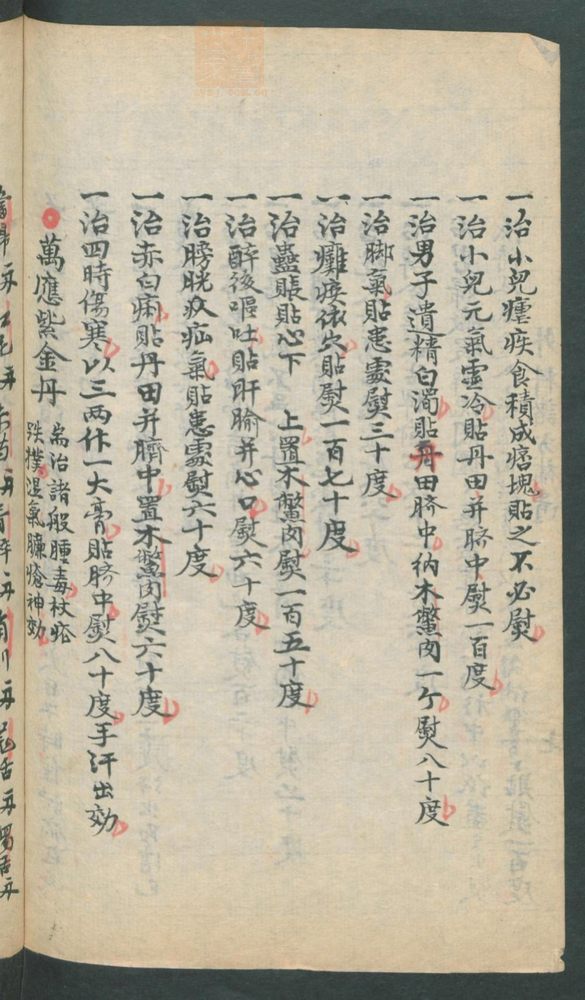 一治小兒瘧疾食積成痞塊貼之不必熨
一治小兒元氣虛冷貼丹田并脐中熨一百度
一治男子遺精白濁貼丹田脐中納木鱉肉一个熨八十度
一治脚氣貼患處熨三十度
一治癱瘓依穴貼熨一百七十度
一治蠱脹貼心下 上置木鱉肉熨一百五十度
一治醉後嘔吐貼肝腧并心口熨六十度
一治膀胱疝氣貼患處熨六十度
一治赤白痢貼丹田并臍中置木鱉肉熨六十度
一治四時傷寒以三两作一大膏貼脐中熨八十度手汗出効
萬應紫金丹
耑治諸般腫毒杖瘡
跌撲濕氣臁瘡神効